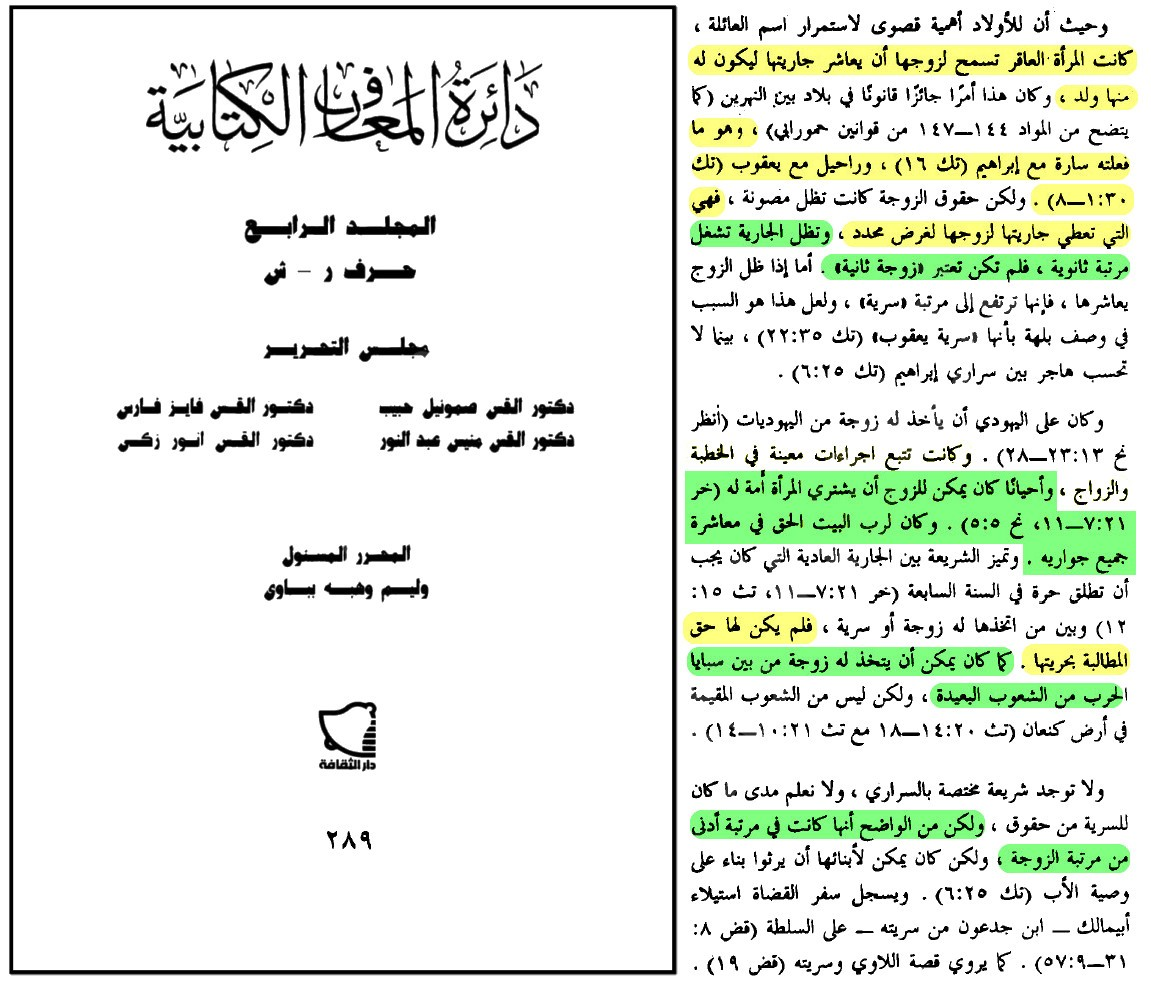 دائرة المعارف الكتابية
المجلد الرابع
حرف ر - ش
مجلس التحرير
دكتور القس صموئيل حبيب دكتور القس فايز فارس
دكتور القس منيس عبد النور دكتور القس انور زكي
المحرر المسئول
وليم وهبه بباوي
دار الثقافة
٢٨٩
وحيث أن للأولاد أهمية قصوى لاستمرار اسم العائلة ،
كانت المرأة العاقر تسمح لزوجها أن يعاشر جاريتها ليكون له
منها ولد ، وكان هذا أمرًا جائزًا قانونًا في بلاد بين النهرين (كما
يتضح من المواد ١٤٤—١٤٧ من قوانين حمورابي) ، وهو ما
فعلته سارة مع إبراهيم (تك ١٦) ، وراحيل مع يعقوب (تك
٣٠:١—٨) . ولكن حقوق الزوجة كانت تظل مصونة ، فهي
التي تعطي جاريتها لزوجها لغرض محدد ، وتظل الجارية تشغل
مرتبة ثانوية ، فلم تكن تعتبر «زوجة ثانية» . أما إذا ظل الزوج
يعاشرها ، فإنها ترتفع إلى مرتبة «سرية» ، ولعل هذا هو السبب
في وصف بلهة بأنها «سرية يعقوب» (تك ٣٥:٢٢) ، بينما لا
تحسب هاجر بين سراري إبراهيم (تك ٢٥:٦) .
وكان على اليهودي أن يأخذ له زوجة من اليهوديات (أنظر
نح ١٣:٢٣—٢٨) . وكانت تتبع اجراءات معينة في الخطبة
والزواج ، وأحيانًا كان يمكن للزوج أن يشتري المرأة أمة له (خر
٢١:٧—١١، نح ٥:٥) . وكان لرب البيت الحق في معاشرة
جميع جواريه . وتميز الشريعة بين الجارية العادية التي كان يجب
أن تطلق حرة في السنة السابعة (خر ٢١:٧—١١، تث ١٥:
١٢) وبين من اتخذها له زوجة أو سرية ، فلم يكن لها حق
المطالبة بحريتها . كما كان يمكن أن يتخذ له زوجة من بين سبايا
الحرب من الشعوب البعيدة ، ولكن ليس من الشعوب المقيمة
في أرض كنعان (تث ٢٠:١٤—١٨ مع تث ٢١:١٠—١٤) .
ولا توجد شريعة مختصة بالسراري ، ولا نعلم مدى ما كان
للسرية من حقوق ، ولكن من الواضح أنها كانت في مرتبة أدنى
من مرتبة الزوجة ، ولكن كان يمكن لأبنائها أن يرثوا بناء على
وصية الأب (تك ٢٥:٦) . ويسجل سفر القضاة استيلاء
أبيمالك — ابن جدعون من سريته — على السلطة (قض ٨:
٣١—٩:٥٧) . كما يروي قصة اللاوي وسريته (قض ١٩) .